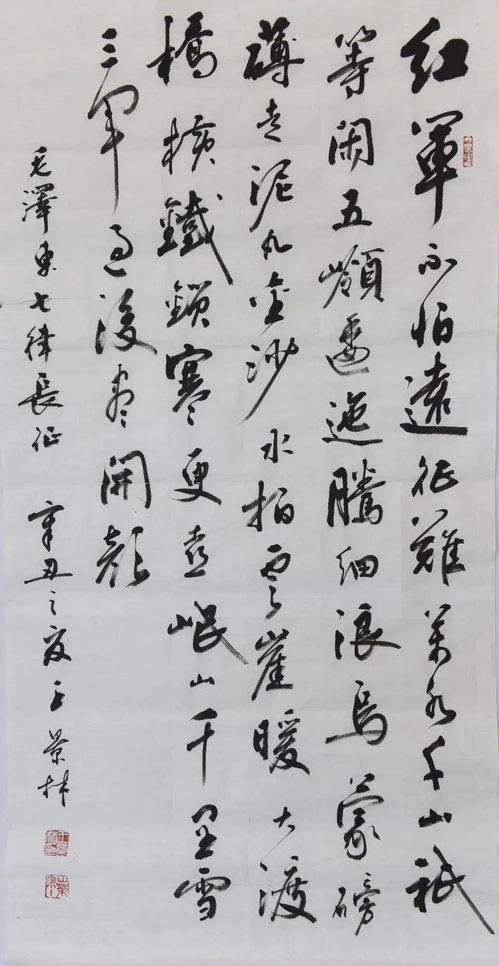 红军不怕遠征難萬水千山祇
等闲五嶺逶迤騰细浪烏蒙磅
礴走泥丸金沙水拍雲崖暖大渡
橋横鐵鎖寒更喜岷山千里雪
三军过後盡開颜
毛澤東七律長征 辛丑之夏王景林